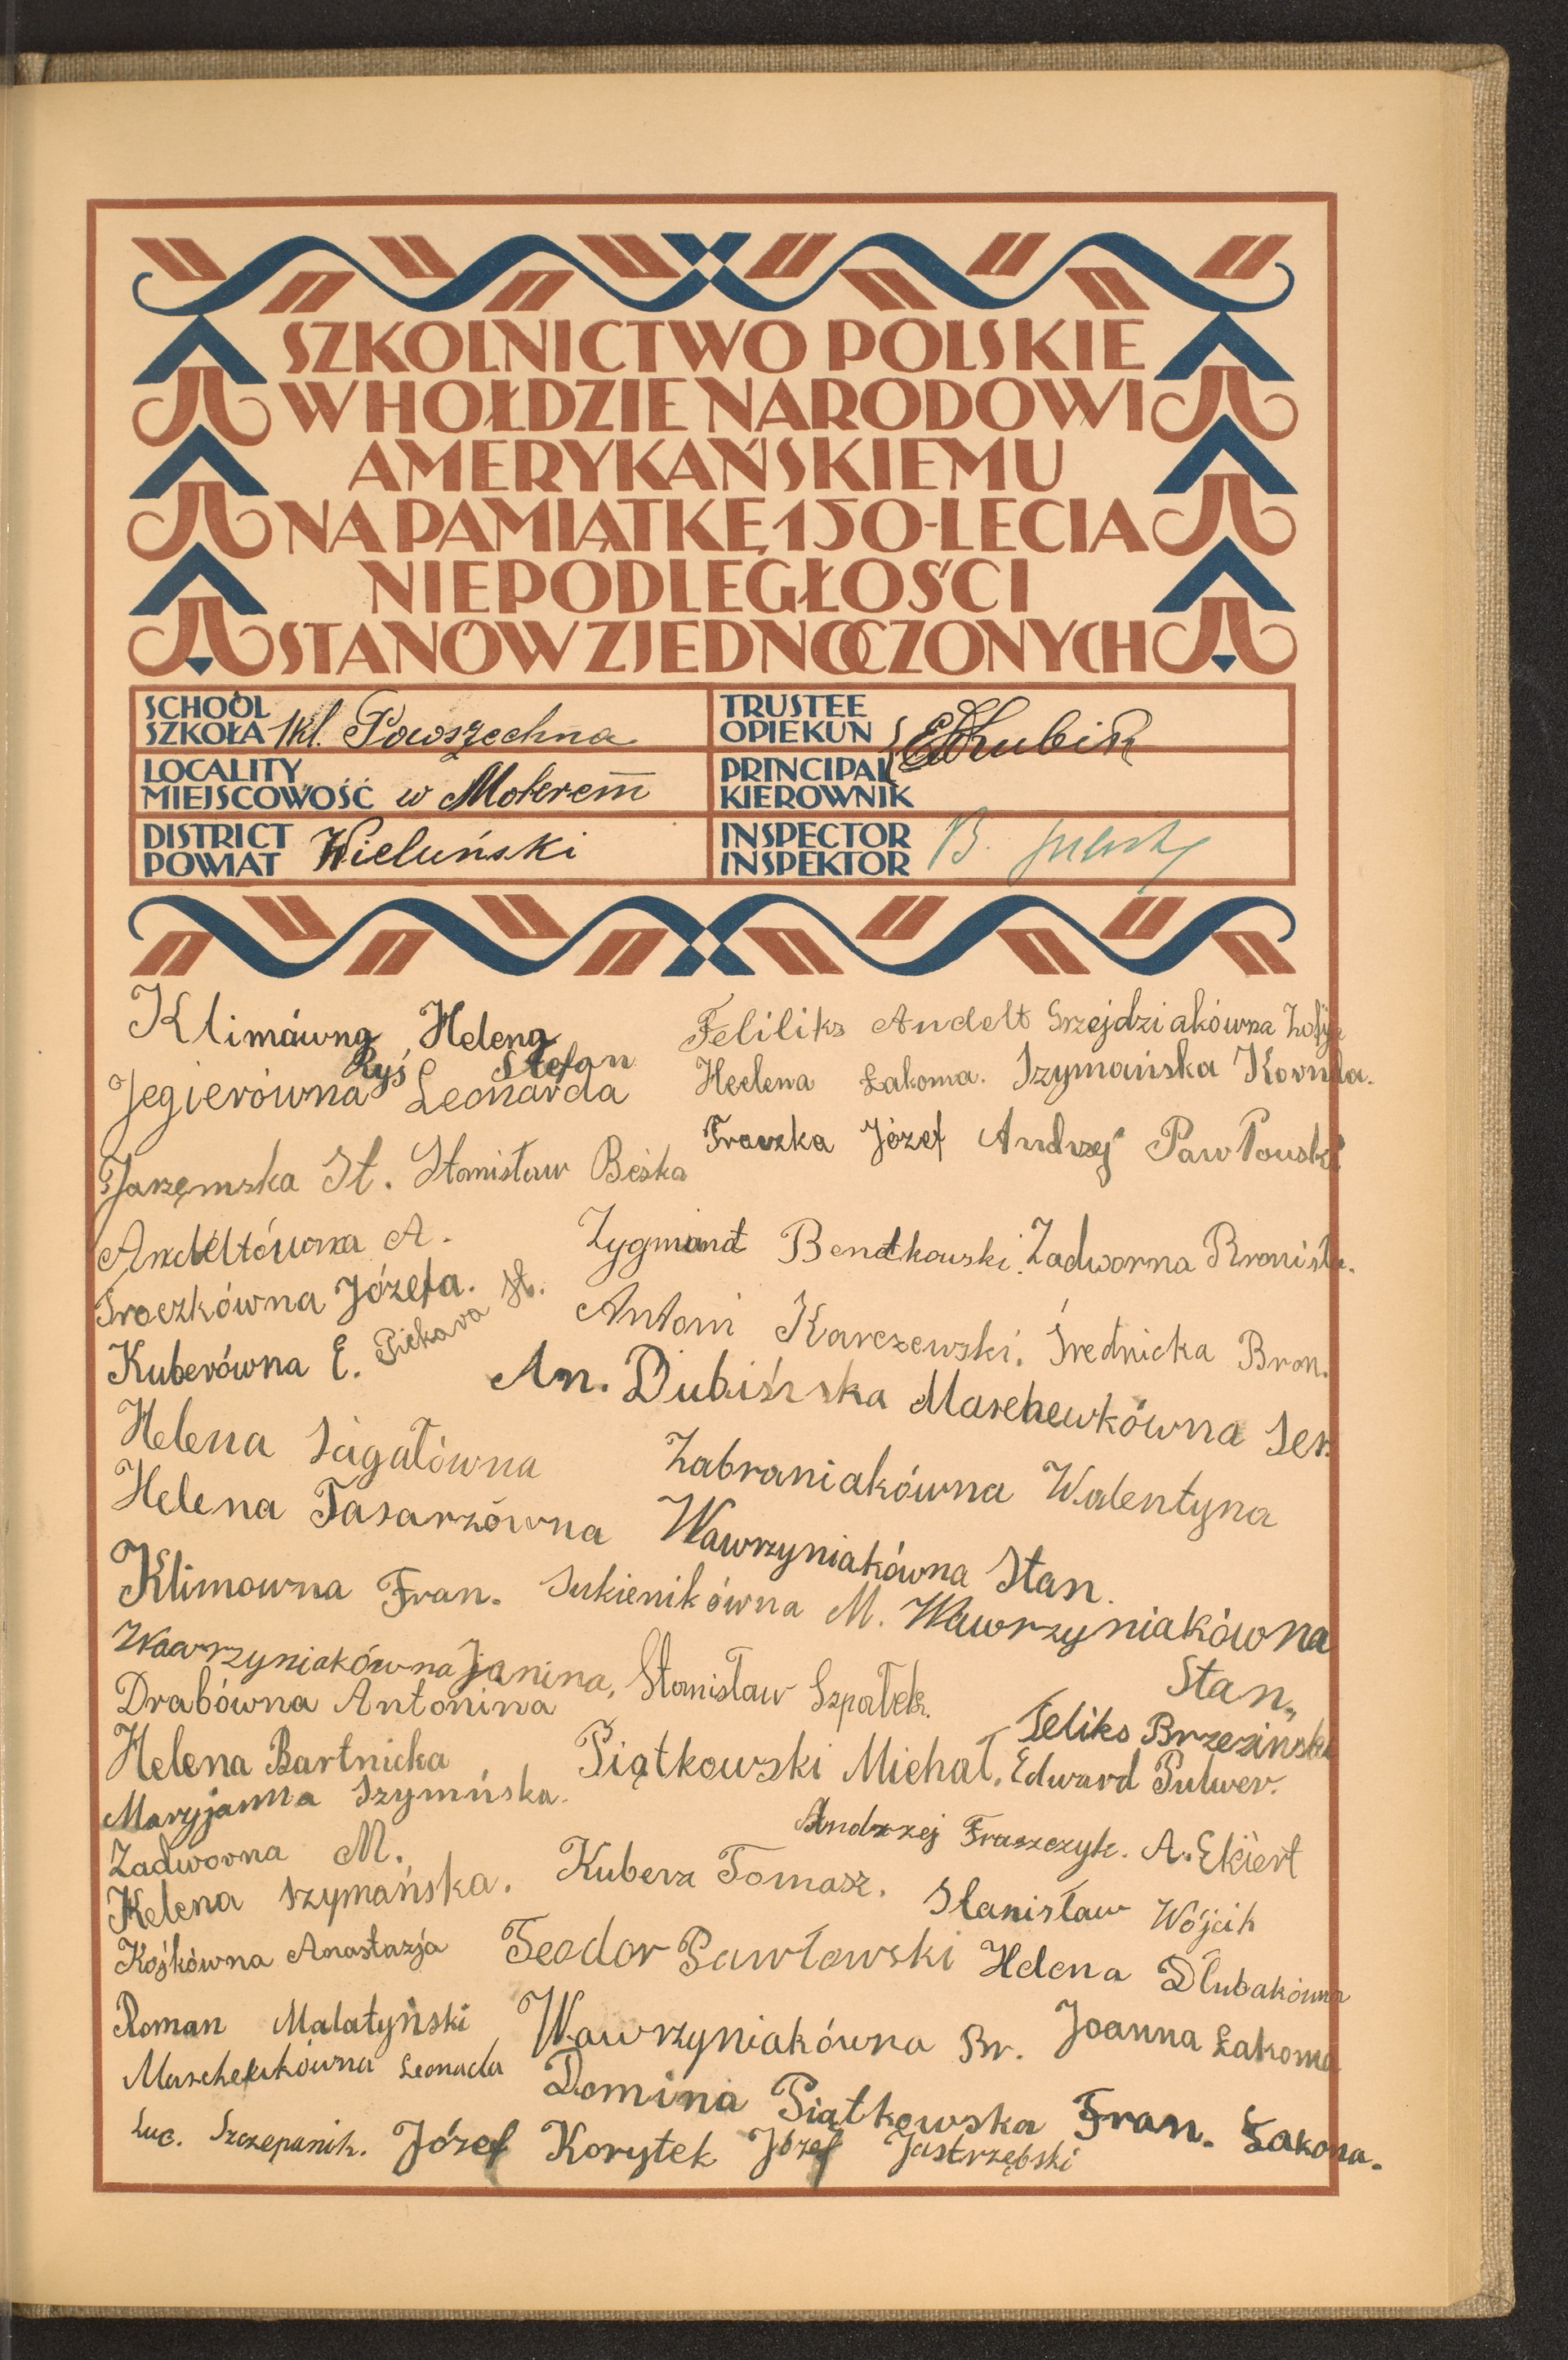 SZKOLNICTWO POLSKIE
W HOŁDZIE NARODOWI
AMERYKAŃSKIEMU
NA PAMIĄTKĘ 150-LECIA
NIEPODLEGŁOŚCI
STANÓW ZJEDNOCZONYCH
SCHOOL
SZKOŁA 1kl. Powszechna
TRUSTEE
OPIEKUN
LOCALITY
MIEJSCOWOŚĆ w Mokrem
PRINCIPAL
KIEROWNIK
DISTRICT
POWIAT Wieluński
INSPECTOR
INSPEKTOR B.
Klimówna Helena
Feliliks Andelt Grzejdziakówna Zofja
Ryś Stefan
Jegierówna Leonarda
Heelena Łakoma. Szymańska Kornela.
Fraczka Józef Andrzej Pawłouski
Jarzęmska St. Stanisław Beśka
Andeltówna A.
Zygmund Bendkouski. Zadworna Bronisła.
Troczkówna Józefa.
Piekara St.
Antoni Karczewski. Średnicka Bron.
Kuberówna E.
An. Dubińska Marchewkówna Ser.
Helena Sagałówna
Zabraniakówna Walentyna
Helena Tasarzówna
Wawrzyniakówna Stan.
Klimowna Fran. Sukienikówna M. Wawrzyniakówna
Stan.
Wawrzyniakówna Janina, Stanisław Szpałek.
Drabówna Antonina
Feliks Brzezinski
Helena Bartnicka
Piątkowski Michał. Edward Pulwer.
Maryjanna Szymńska.
Andrzej Fraszczyk. A. Ekiert
Zadworna M.
Kubera Tomasz.
Helena Szymańska.
Stanisław Wójcik
Kójkówna Anastazja
Teodor Pawłowski Helena Dłubakówna
Roman Małatyński
Wawrzyniakówna Br. Joanna Łakoma
Marchewkówna Leonada
Domina Piątkowska Fran. Łakoma.
Luc. Szczepanik. Józef Korytek Józef Jastrzębski